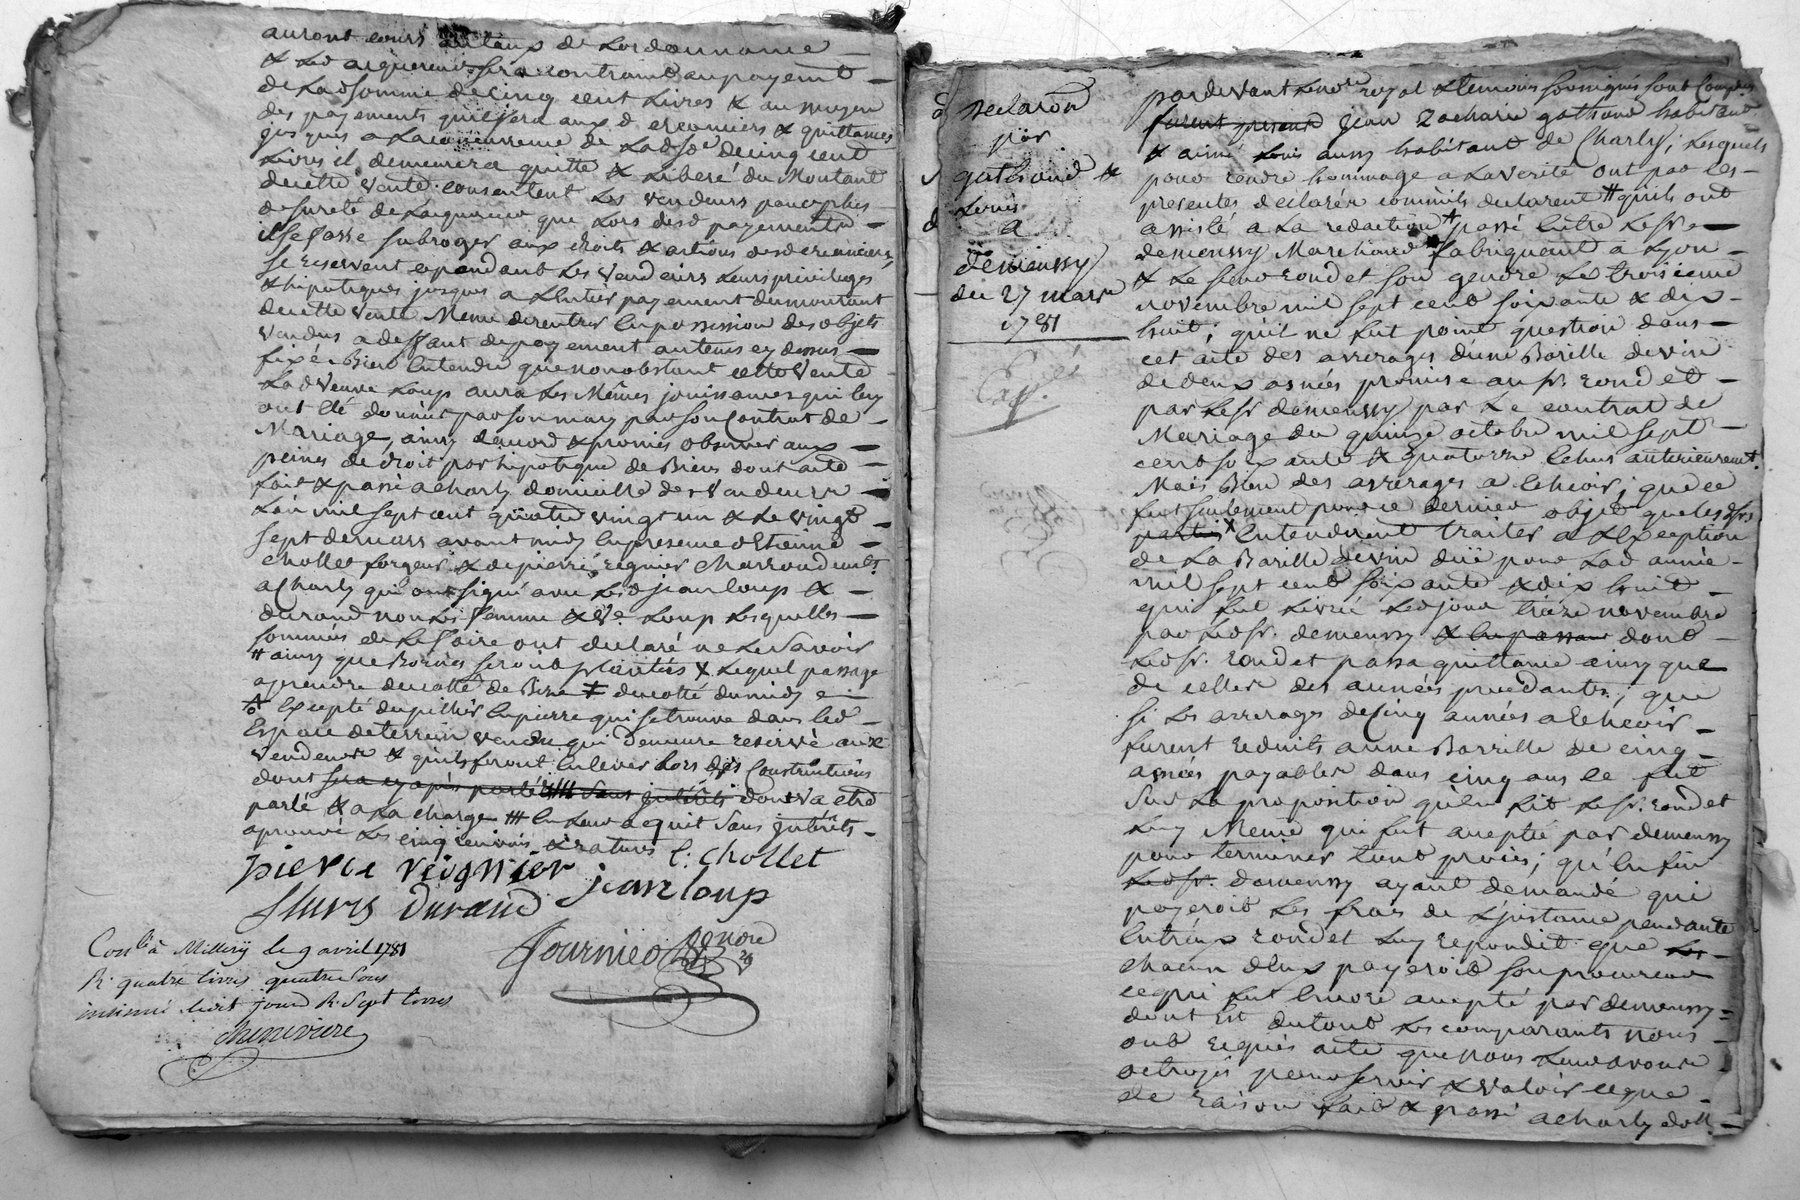 auront cours au taux de L'ordonnance
& Led acquereur sera contraint au payemt
de Lad somme de cinq cent Livres & au moyen
des payements qu'il fera aux d creanciers & quittances
jusques a La concurrence de Lad se de cinq cent
Livres il demeurera quitte & Liberé du Montant
de cette vente consentent Les vendeurs pour plus
de sureté de L'acquereur que Lors desd payements
il se fasse subroger aux droits & actions desd creanciers
se reservent cependant Les vendeurs Leurs privileges
& hipoteques jusques a L'entier payement du montant
de cette vente Meme de rentrer en possession des objets
vendus a deffaut de payement au tems cy dessus
fixé Bien Entendu que nonobstant cette vente
Lad veuve Loup aura Les Mêmes jouissances qui Luy
ont été données par son mary par son Contrat de
Mariage, ainsy accord & promis observer aux
peines de droit par hipoteque de Biens dont acte
fait & passé a charly domicille des vendeurs
L'an mil sept cent quatre vingt un & Le vingt
sept de mars avant midy En presence d'Etienne
chollet forgeur & de pierre regnier charron demts
a Charly qui ont signé avec Lesd jean loup &
durand non Les femme & Ve Loup Lesquelles
sommées de Le faire ont declaré ne Le savoir
# ainsy que Bornes seront plantées X Lequel passage
a prendre du cotté de Bize ‡ du cotté du midy
Excepté du pillier En pierre qui se trouve dans led
Espace de terrein vendu qui demeure reservé aux
vendeurs & qu'ils feront Enlever Lors des Constructions
dont sera cy après parlé #### sans intérêts dont va etre
parlé & a La charge ### En Leur acquit sans intérêts
aprouvé Les cinq renvois & ratures
pierre reignier C: chollet
fleury Durand jean loup
fournier Nore
Conlé à Millery le 9 avril 1781
R. quatre livres quatre sous
insinué ledit jour R. Sept livres
chenevière
Declaron
par
gathaud &
Louis
A
demeussy
du 27 mars
1781
Expé
pardevant Le nore royal & temoins soussignés sont Comparus
furent presents jean Zacharie gathaud habitant
& aimé Louis aussy habitant de Charly; Lesquels
pour rendre hommage a La verité ont par Les
presentes declarér comm'ils declarent # qu'ils ont
assisté a La redaction + passé Entre Le sr
demeussy Marchand fabriquant a Lyon
& Le sieur rondet son gendre Le trois ieme
novembre mil sept cent soixante & dix
huit; qu'il ne fut point question dans
cet acte des arrerages d'une Barille de vin
de deux asnées promise au sr. rondet
par Le sr demeussy par Le contrat de
Mariage du quinze octobre mil sept
cent soixante & quatorze Echus anterieuremt.
Mais Bien des arrerages a Echeoir; que ce
fut seulement pour ce dernier objet que les dsrs
parties X Entendirent traiter a L'Exception
de La Barille de vin düe pour Lad année
mil sept cent soixante & dix huit
qui fut Livrée Led jour treize novembre
par Led sr. demeussy & En passant dont
Led sr. rondet passa quittance ainsy que
de celles des années precedantes; que
si Les arrerages de Cinq années a Echeoir
furent reduits a une Barrille de cinq
asnées payables dans cinq ans ce fut
sur La proposition qu'En fit Le sr. rondet
Luy Meme qui fut aceptée par demeussy
pour terminer tout procés; qu'En fin
Led sr. demeussy ayant demandé qui
payeroit Les frais de L'instance pendante
Entr'eux rondet Luy repondit que Le
chacun d'Eux payeroit son procureur
ce qui fut Encore accepté par demeussy
dont Et du tout Les comparants nous
ont requis acte que nous Leur avons
octroyé pour servir & valoir ce que
de raison fait & passé a charly dom.